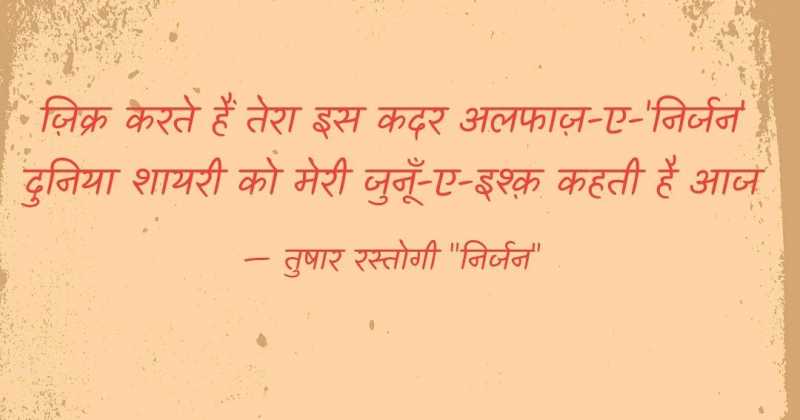 ज़िक्र करते हैं तेरा इस कदर अलफाज़-ए-'निर्जन'
दुनिया शायरी को मेरी जुनूँ-ए-इश्क़ कहती है आज
— तुषार रस्तोगी "निर्जन"